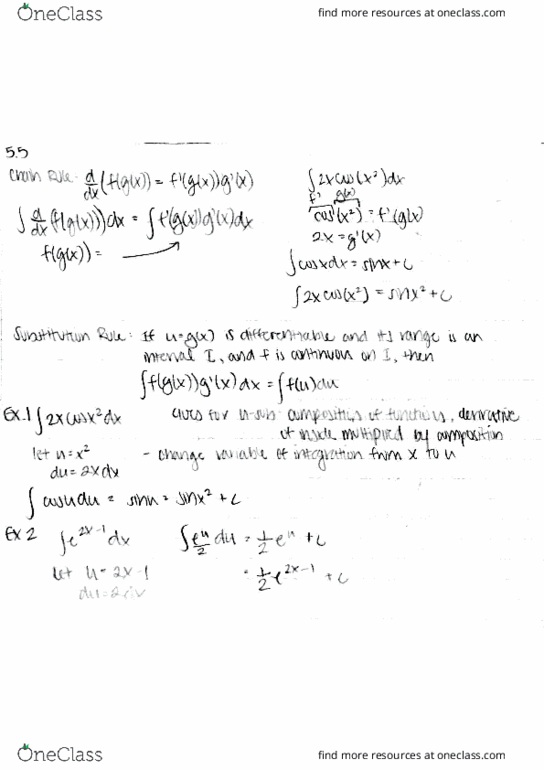 OneClass
find more resources at oneclass.com
5.5
Chain Rule: d/dx (f(g(x)) = f'(g(x))g'(x)
∫ d/dx (f(g(x)))dx = ∫ f'(g(x))g'(x)dx
f(g(x)) =
∫2x cos(x²)dx
f' g(x)
cos(x²) = f'(g(x)
2x = g'(x)
∫cosxdx = sinx + c
∫2x cos(x²) = sinx² + c
Substitution Rule: If u=g(x) is differentiable and its range is an
interval I, and f is continuous on I, then
∫f(g(x))g'(x)dx = ∫f(u)du
Ex.1 ∫2x cosx² dx
let u = x²
du = 2x dx
clues for u-sub: compositions of functions, derivative
of inside multiplied by composition
- change variable of integration from x to u
∫ cosu du = sinu = sinx² + c
Ex 2 ∫e^(2x-1) dx
let u = 2x-1
∫ e^u/2 du = 1/2 e^u + c
= 1/2 e^(2x-1) + c
OneClass
find more resources at oneclass.com